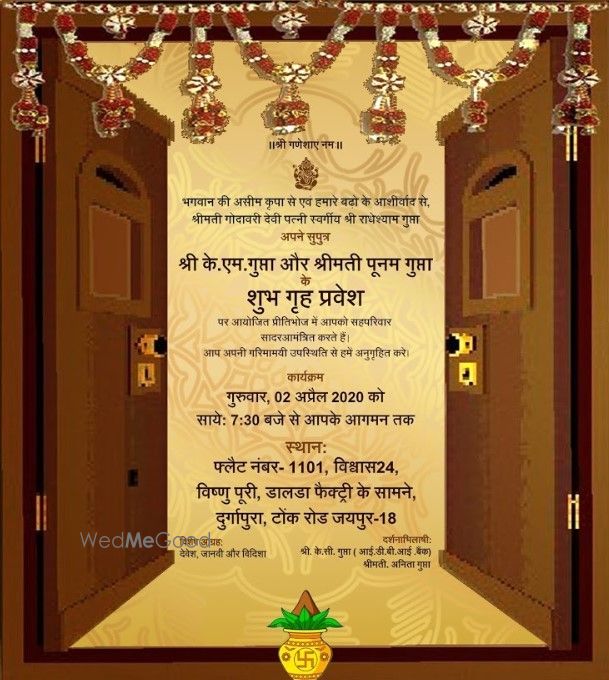 ॥श्री गणेशाए नम॥
भगवान की असीम कृपा से एवं हमारे बढो के आशीर्वाद से,
श्रीमती गोदावरी देवी पत्नी स्वर्गीय श्री राधेश्याम गुप्ता
अपने सुपुत्र
श्री के.एम.गुप्ता और श्रीमती पूनम गुप्ता
के
शुभ गृह प्रवेश
पर आयोजित प्रीतिभोज में आपको सहपरिवार
सादरआमंत्रित करते हैं।
आप अपनी गरिमामयी उपस्थिति से हमें अनुगृहित करे।
कार्यक्रम
गुरुवार, 02 अप्रैल 2020 को
साये: 7:30 बजे से आपके आगमन तक
स्थान:
फ्लैट नंबर- 1101, विश्वास24,
विष्णु पूरी, डालडा फैक्ट्री के सामने,
दुर्गापुरा, टोंक रोड जयपुर-18
WedMeGood
विशेष आग्रह:
देवेश, जानवी और विदिशा
दर्शनाभिलाषी:
श्री. के.सी. गुप्ता ( आई.डी.बी.आई .बैंक)
श्रीमती. अनिता गुप्ता